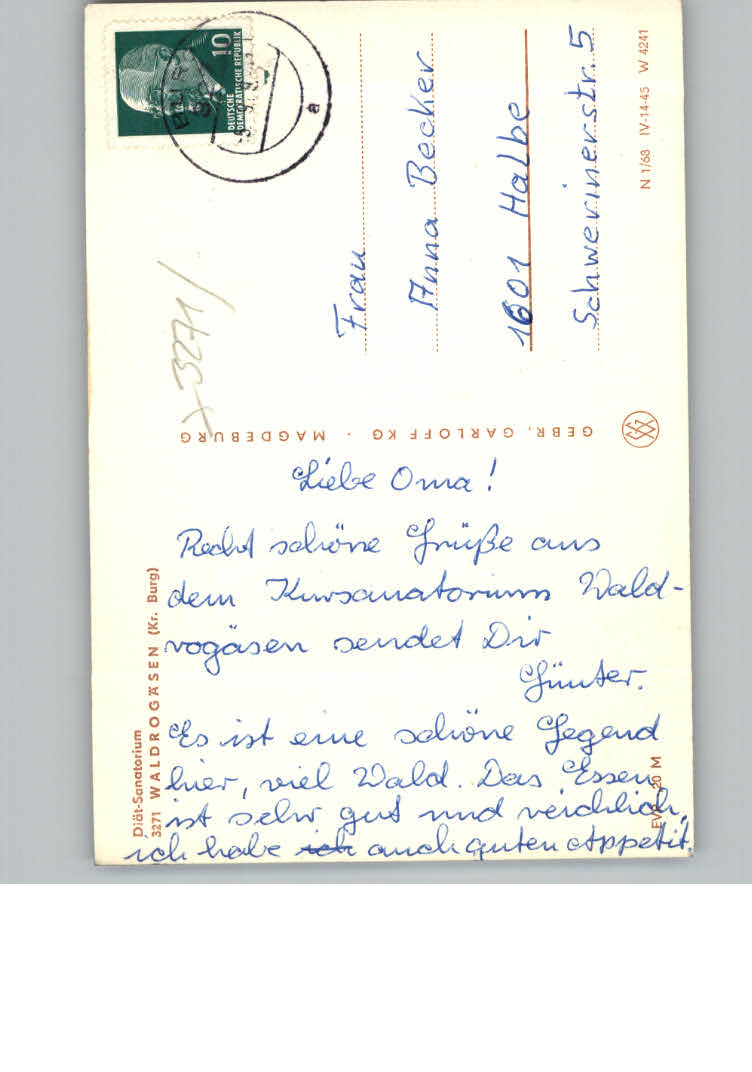 10
DEUTSCHE
DEMOKRATISCHE REPUBLIK
a
x 3271/
Frau
Anna Becker
1601 Halbe
Schwerinerstr. 5
N 1/68 IV-14-45 W 4241
GEBR. GARLOFF KG · MAGDEBURG
Diät-Sanatorium
3271 WALDROGÄSEN (Kr. Burg)
EVP 20 M
Liebe Oma!
Recht schöne Grüße aus
dem Kursanatorium Wald-
rogäsen sendet Dir
Günter.
Es ist eine schöne Gegend
hier, viel Wald. Das Essen
ist sehr gut und reichlich,
ich habe ich auch guten Appetit.